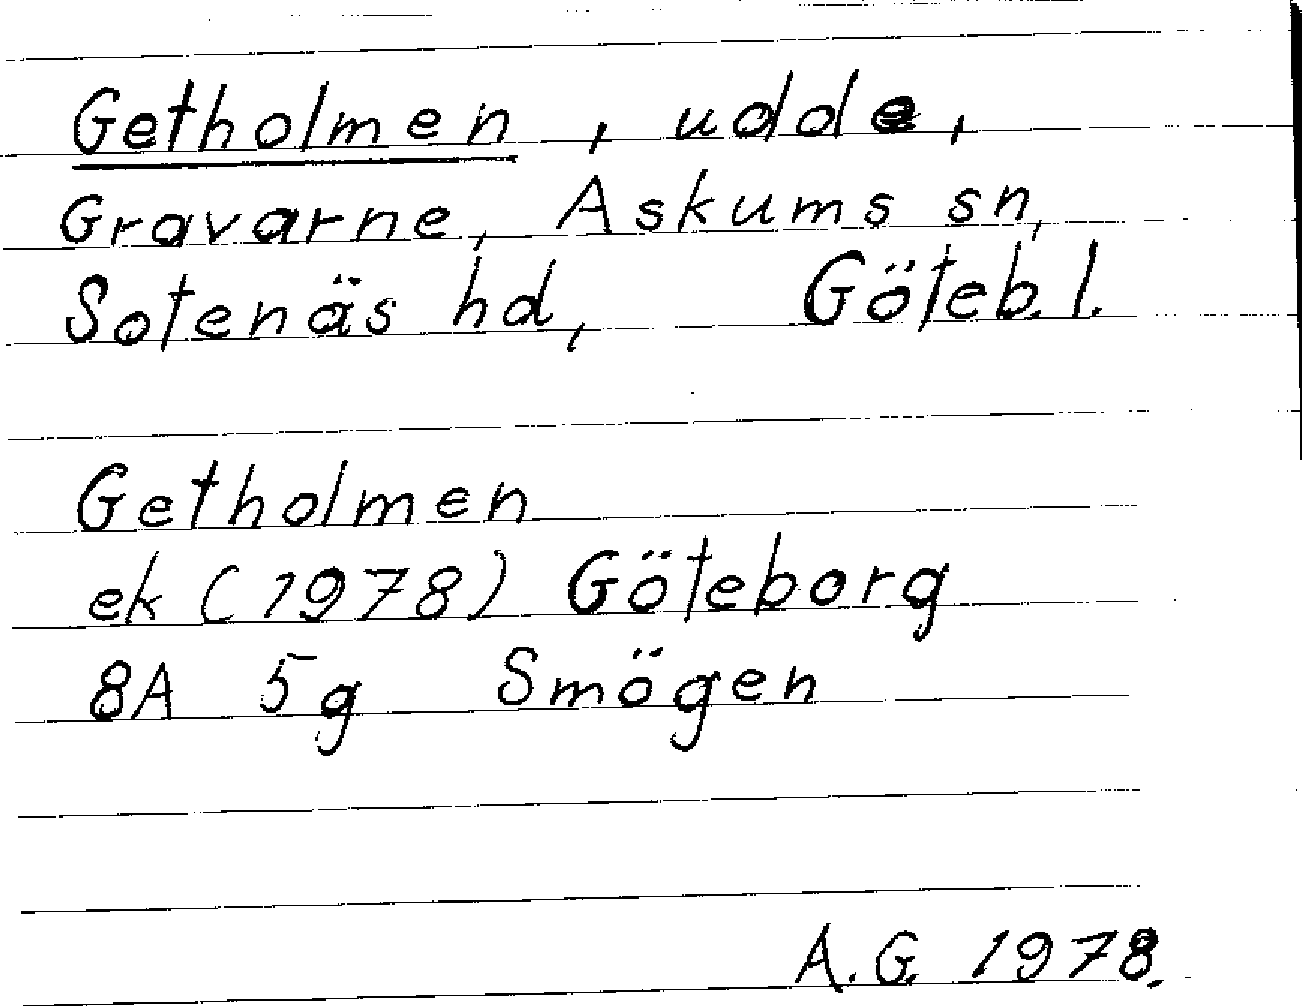 Getholmen, udde,
Gravarne, Askums sn,
Sotenäs hd, Göteb. l.
Getholmen
ek (1978) Göteborg
8A 5g Smögen
A.G. 1978.